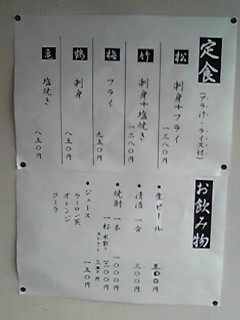 定食
(アラ汁・ライス付)
松 刺身+フライ 一三八〇円
竹 刺身+塩焼き 一二八〇円
梅 フライ 九五〇円
鶴 刺身 八五〇円
亀 塩焼き 八五〇円
お飲み物
・生ビール 五〇〇円
・清酒 一合 三〇〇円
・焼酎 一本 一〇〇〇円
一杯
・ジュース 一五〇円
ウーロン茶
オレンジ
コーラ